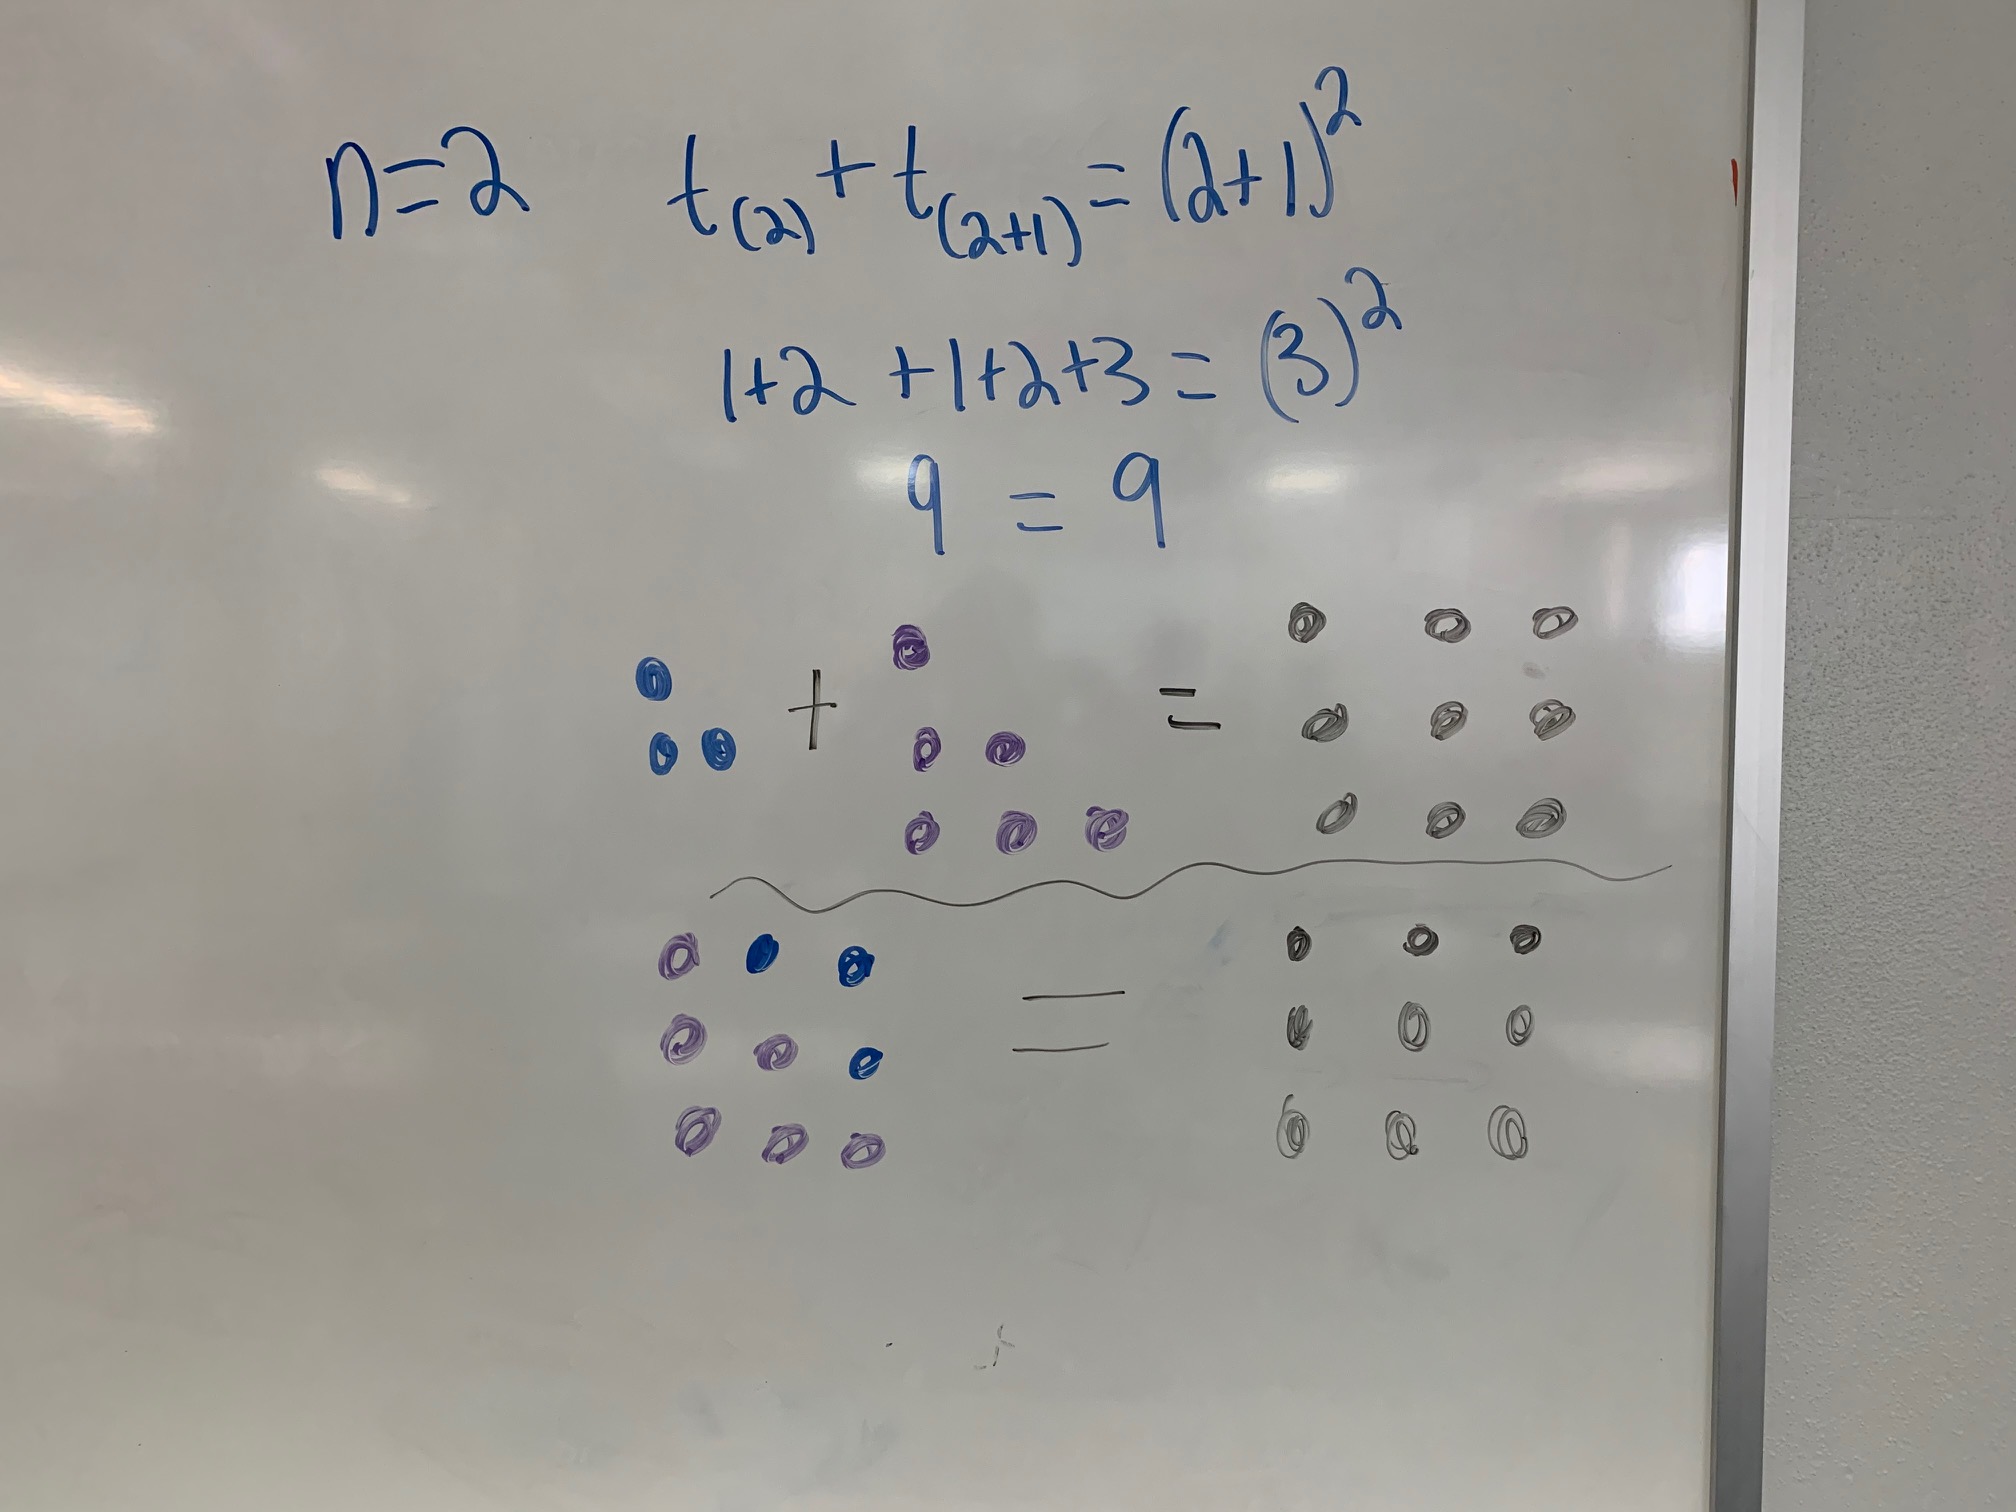 n=2 t(2) + t(2+1) = (2+1)²
1+2 +1+2+3 = (3)²
9 = 9
+ =
=